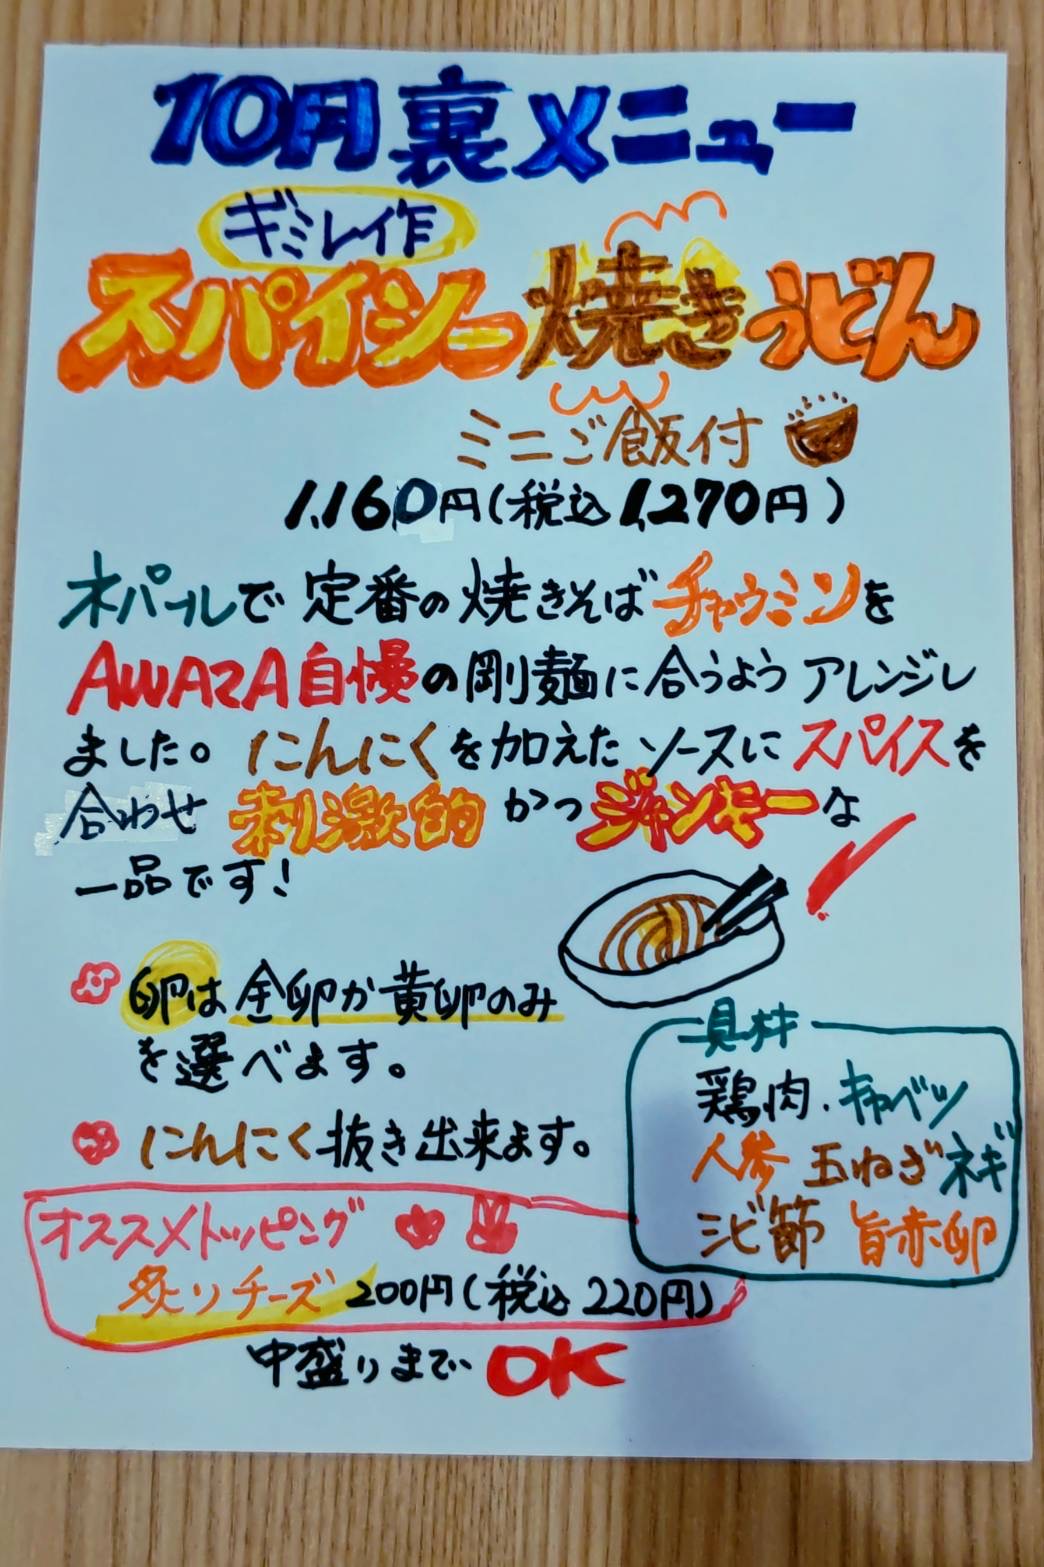 10月裏メニュー
ギミレイ作
スパイシー焼きうどん
ミニご飯付
1,160円(税込1,270円)
ネパールで定番の焼きそばチャウミンを
AWAZA自慢の剛麺に合うようアレンジし
ました。にんにくを加えたソースにスパイスを
合わせ刺激的かつジャンキーな
一品です!
卵は全卵か黄卵のみ
を選べます。
にんにく抜き出来ます。
具材
鶏肉、キャベツ
人参 玉ねぎ ネギ
シビ節 旨赤卵
オススメトッピング
炙りチーズ 200円(税込220円)
中盛りまでOK